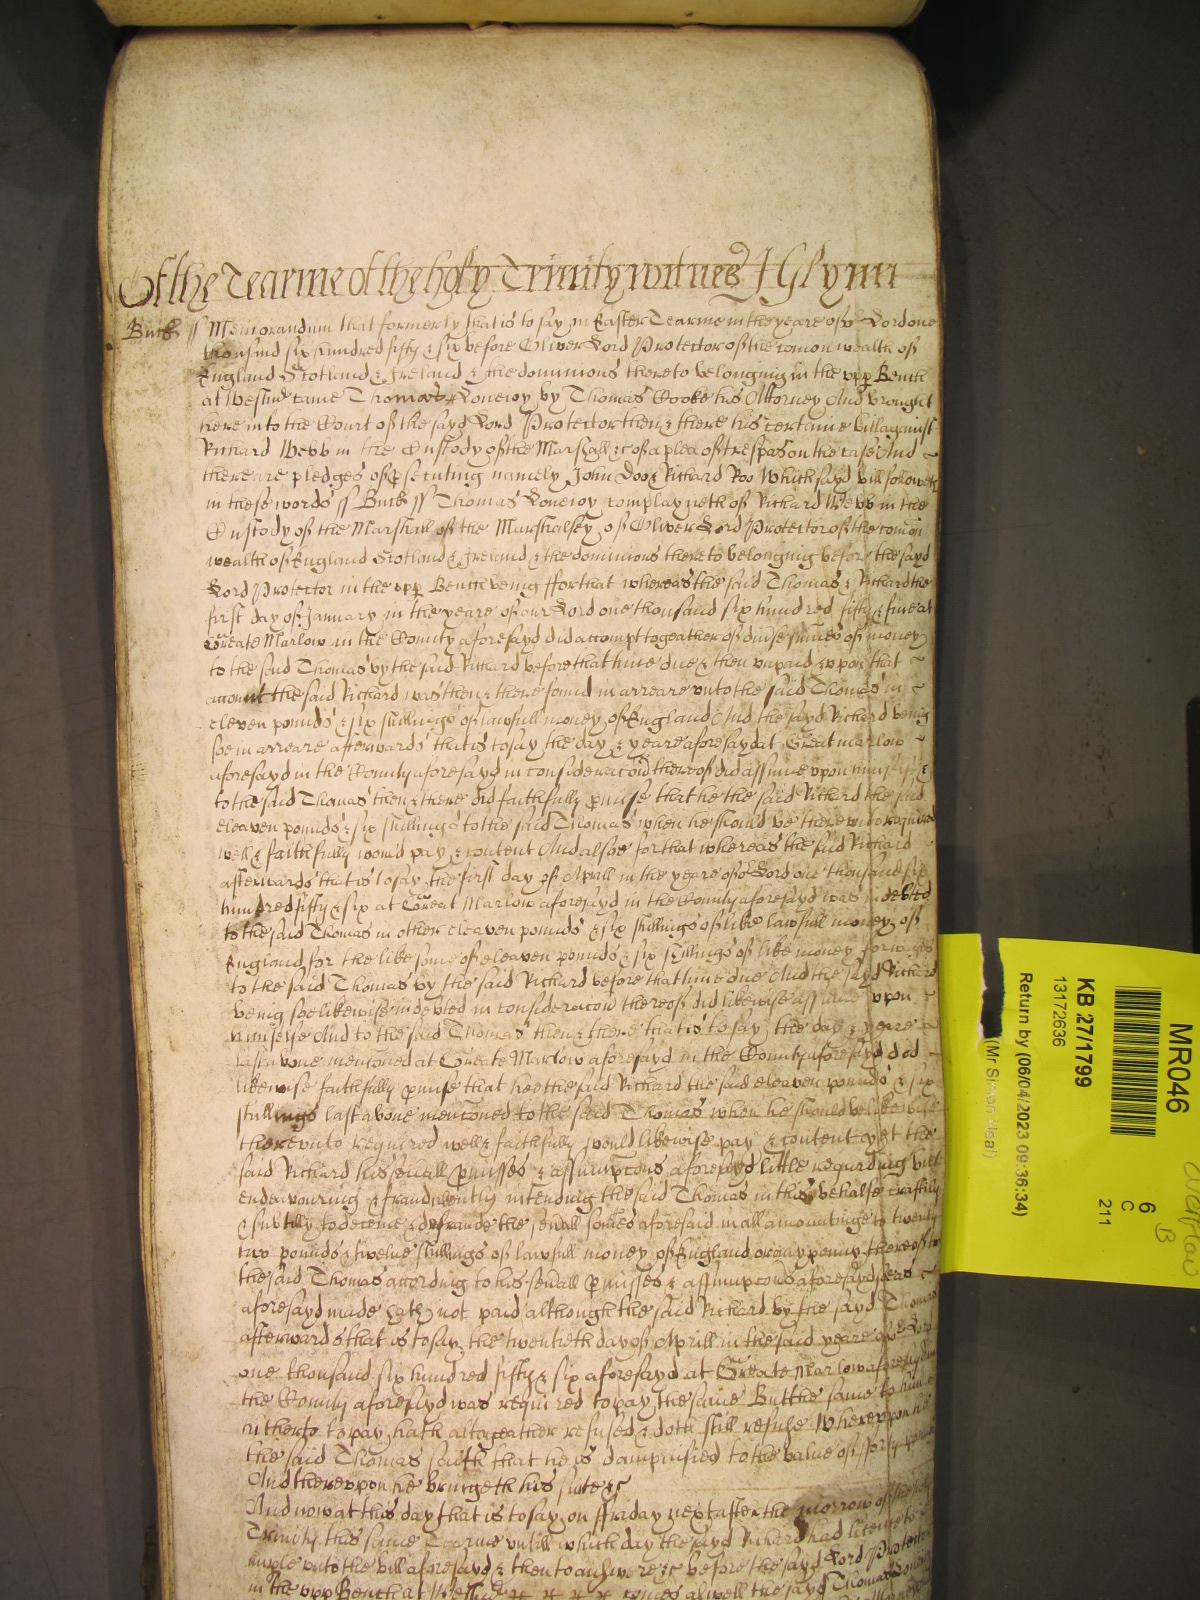 Of the Tearme of the holy Trinity witnes J Glynn
Buck ss Memorandum that formerly that is to say in Easter Tearme in the yeare of or Lord one
thousand six hundred fifty & six before Oliver Lord Protector of the comon wealth of
England Scotland & Ireland & the dominions thereto belonging in the vpp Bench
at Westmr came Thomas Lovejoy by Thomas Cooke his Attorney And brought
here into the Court of the sayd Lord Protector then & there his certaine bill against
Richard Webb in the Custody of the Marshall &c of a plea of trespas on the case And
there are pledges of psecuting namely John Doo & Richard Roo Which sayd bill followeth
in these words ss Buck ss Thomas Lovejoy complayneth of Richard Webb in the
Custody of the Marshall of the Marshalsey of Oliver Lord Protector of the comon
wealth of England Scotland & Ireland & the dominions thereto belonging before the sayd
Lord Protector in the vpp Bench being ffor that whereas the said Thomas & Richard the
first day of January in the yeare of our Lord one thousand six hundred fifty & five at
Greate Marlow in the County aforesayd did accompt togeather of divse sumes of money
to the said Thomas by the said Richard before that time due & then unpaid & vpon that
account the said Richard was then & there found in arreare vnto the said Thomas in
eleven pounds & six shillings of lawfull money of England And the sayd Richard being
soe in arreare afterwards that is to say the day & yeare aforesayd at Great marlow
aforesayd in the County aforesayd in consideracon thereof did assume vpon himselfe &
to the said Thomas then & there did faithfully pmise that he the said Richard the said
eleaven pounds & six shillings to the said Thomas when he should be therevnto required
well & faithfully would pay & content And alsoe for that whereas the said Richard
afterwards that is to say the first day of Aprill in the yeare of or Lord one thousand six
hundred fifty & six at Great Marlow aforesayd in the County aforesayd was indebted
to the said Thomas in other eleaven pounds & six shillings of like lawfull money of
England for the like some of eleaven pounds & six shillings of like money
to the said Thomas by the said Richard before that time due And the sayd Richard
being soe likewise indebted in consideracon thereof did likewise assume vpon
himselfe And to the said Thomas then & there that is to say the day & yeare
last above mencioned at Greate Marlow aforesayd in the County aforesayd did
likewise faithfully pmise that hee the said Richard the said eleaven pounds & six
shillings last above mencioned to the said Thomas when he should be likewise
therevnto required well & faithfully would likewise pay & content yet the
said Richard his sevall pmisses & assumpcons aforesayd little regarding but
endeavouring & fraudulently intending the said Thomas in this behalfe craftily
& subtilly to deceive & defraude the sevall somes aforesaid in all amountinge to twenty
two pounds & twelve shillings of lawfull money of England or any penny thereof to
the said Thomas according to his sevall pmisses & assumpcons aforesayd
aforesayd made hath not paid although the said Richard by the sayd Thomas
afterwards that is to say the twentieth day of Aprill in the said yeare of or Lord
one thousand six hundred fifty & six aforesayd at Greate Marlow aforesayd in
the County aforesayd was required to pay the same But the same to him
hitherto to pay hath altogeather refused & doth still refuse Wherevpon he
the said Thomas saith that he is dampnified to the value of forty pounds
And therevpon he bringeth his suite &c
And now at this day that is to say on ffriday next after the morrow of the holy
Trinity this same Tearme untill which day the sayd Richard had licence to
imple vnto the bill aforesayd & then to answere &c before the sayd Lord Protector
in the vpp Bench at Westmr comes as well the sayd Thomas Lovejoy
MR046
KB 27/1799
13172636
Return by (06/04/2023 09:36:34)
(Mr Simon Neal)
6
C
211
B